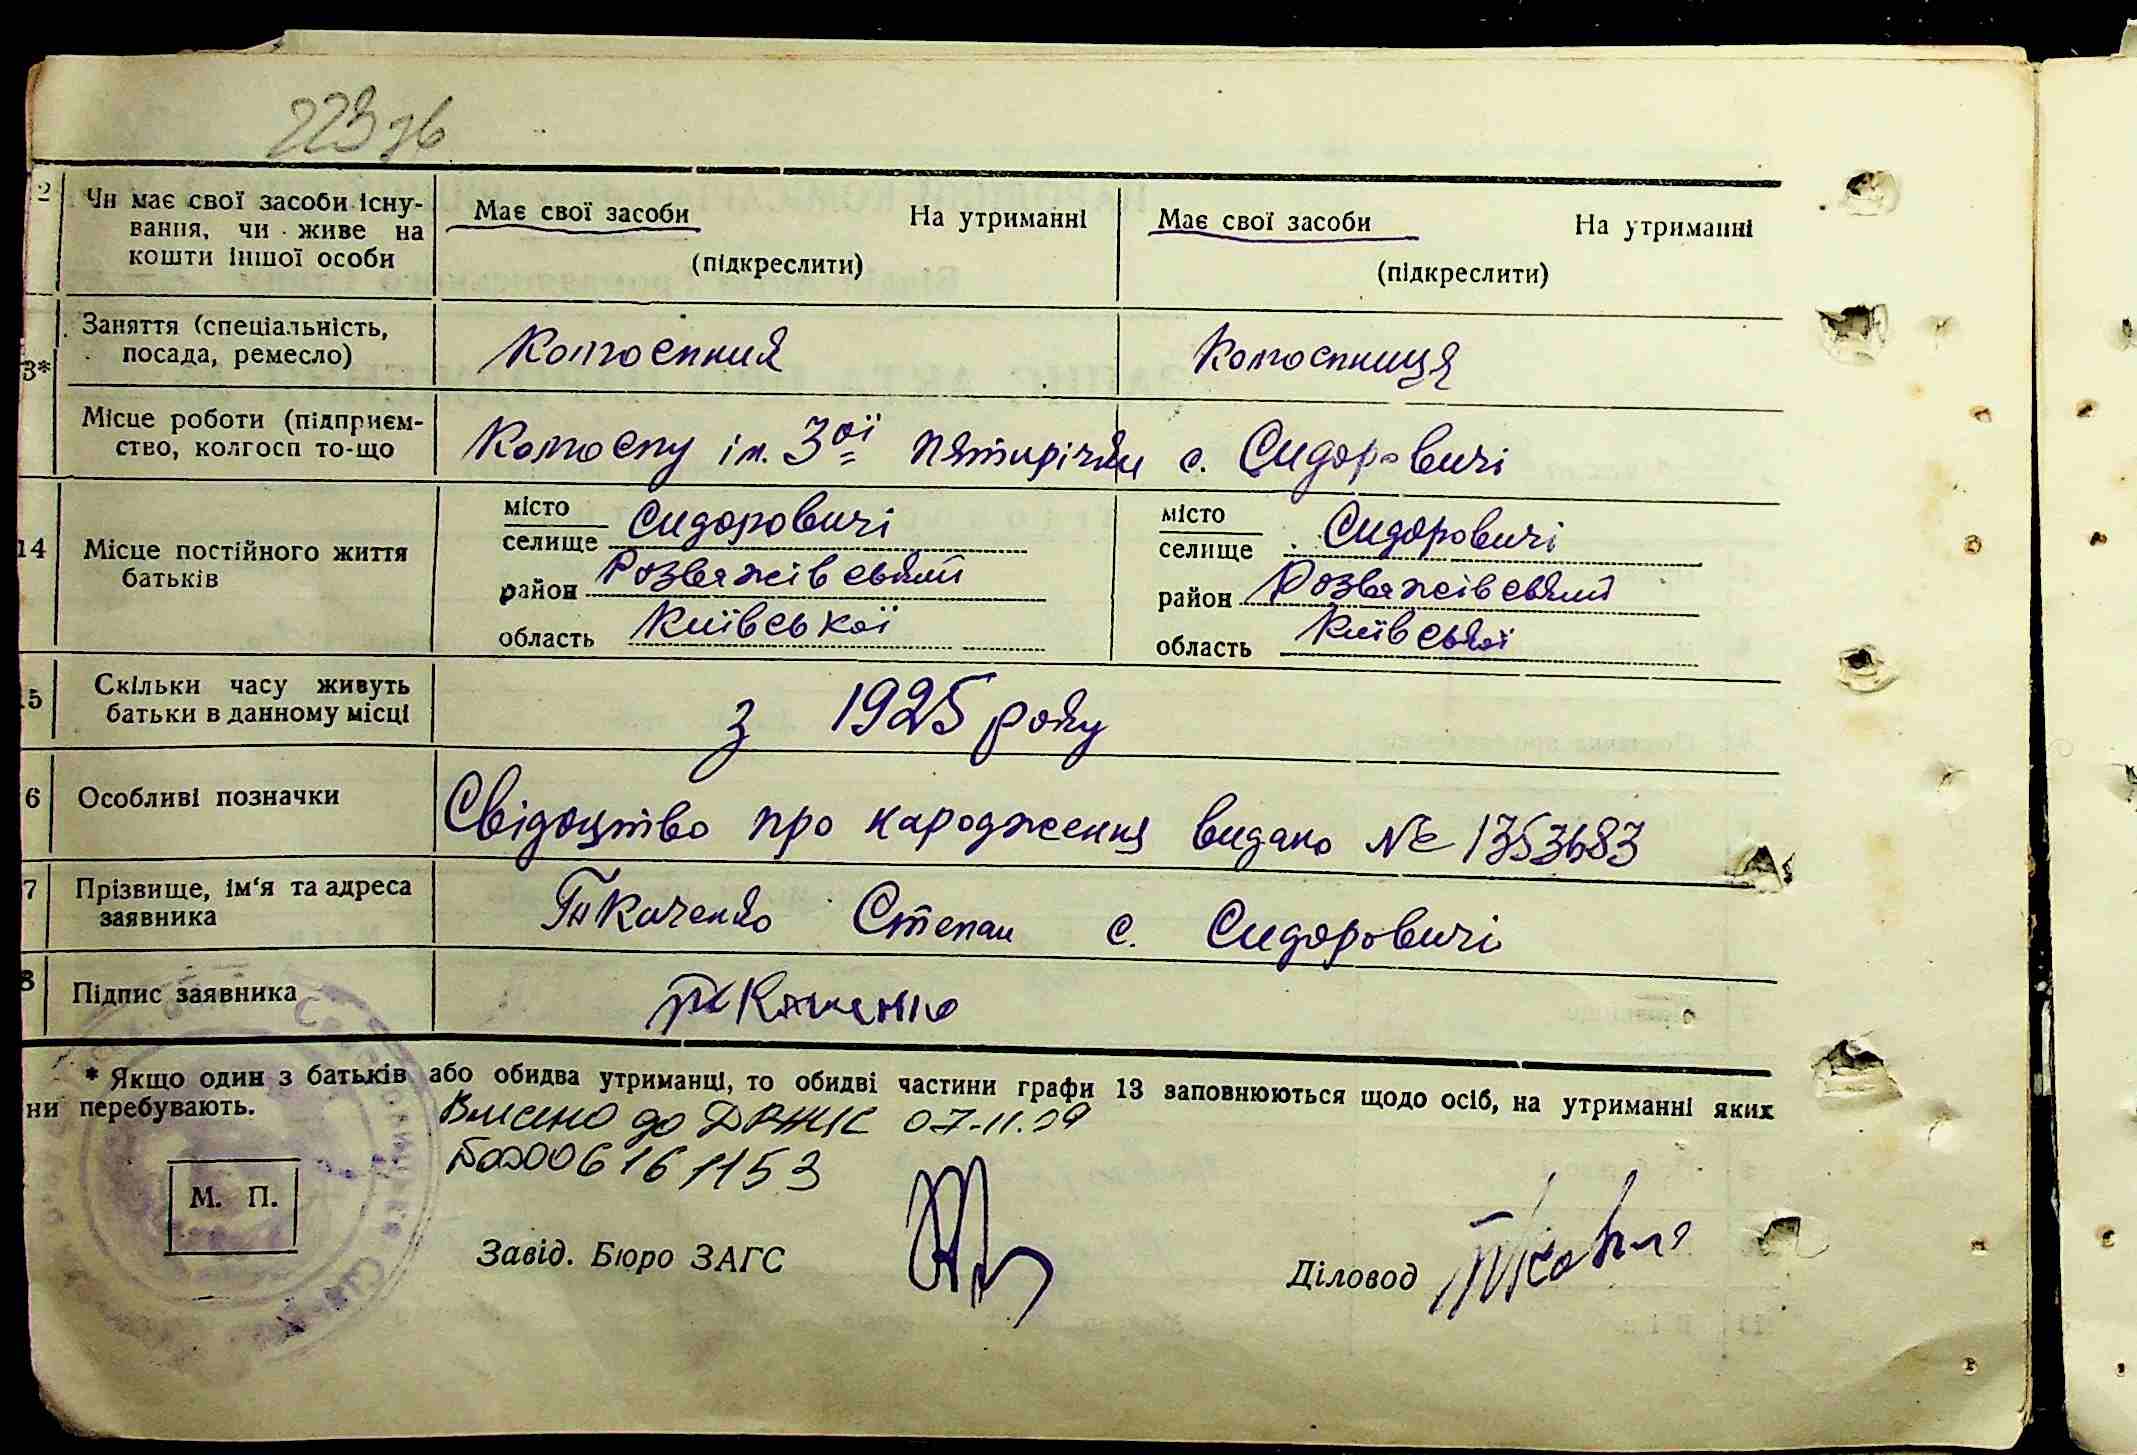 223 зв
2 Чи має свої засоби існу- Має свої засоби На утриманні Має свої засоби На утриманні
вання, чи живе на
кошти іншої особи (підкреслити) (підкреслити)
Заняття (спеціальність, Колгоспник Колгоспниця
3* посада, ремесло)
Місце роботи (підприєм- Колгоспу ім. 3ої пятирічки с. Сидоровичі
ство, колгосп то-що
місто місто
14 Місце постійного життя селище Сидоровичі селище Сидоровичі
батьків район Розважівський район Розважівський
область Київської область Київської
5 Скільки часу живуть з 1925 року
батьки в данному місці
6 Особливі позначки Свідоцтво про народження видано № 1353683
7 Прізвище, ім'я та адреса Ткаченко Степан с. Сидоровичі
заявника
8 Підпис заявника Ткаченко
* Якщо один з батьків або обидва утриманці, то обидві частини графи 13 заповнюються щодо осіб, на утриманні яких
ни перебувають.
Внесено до ДРАЦС 07.11.09
006161153
М. П.
Завід. Бюро ЗАГС Діловод